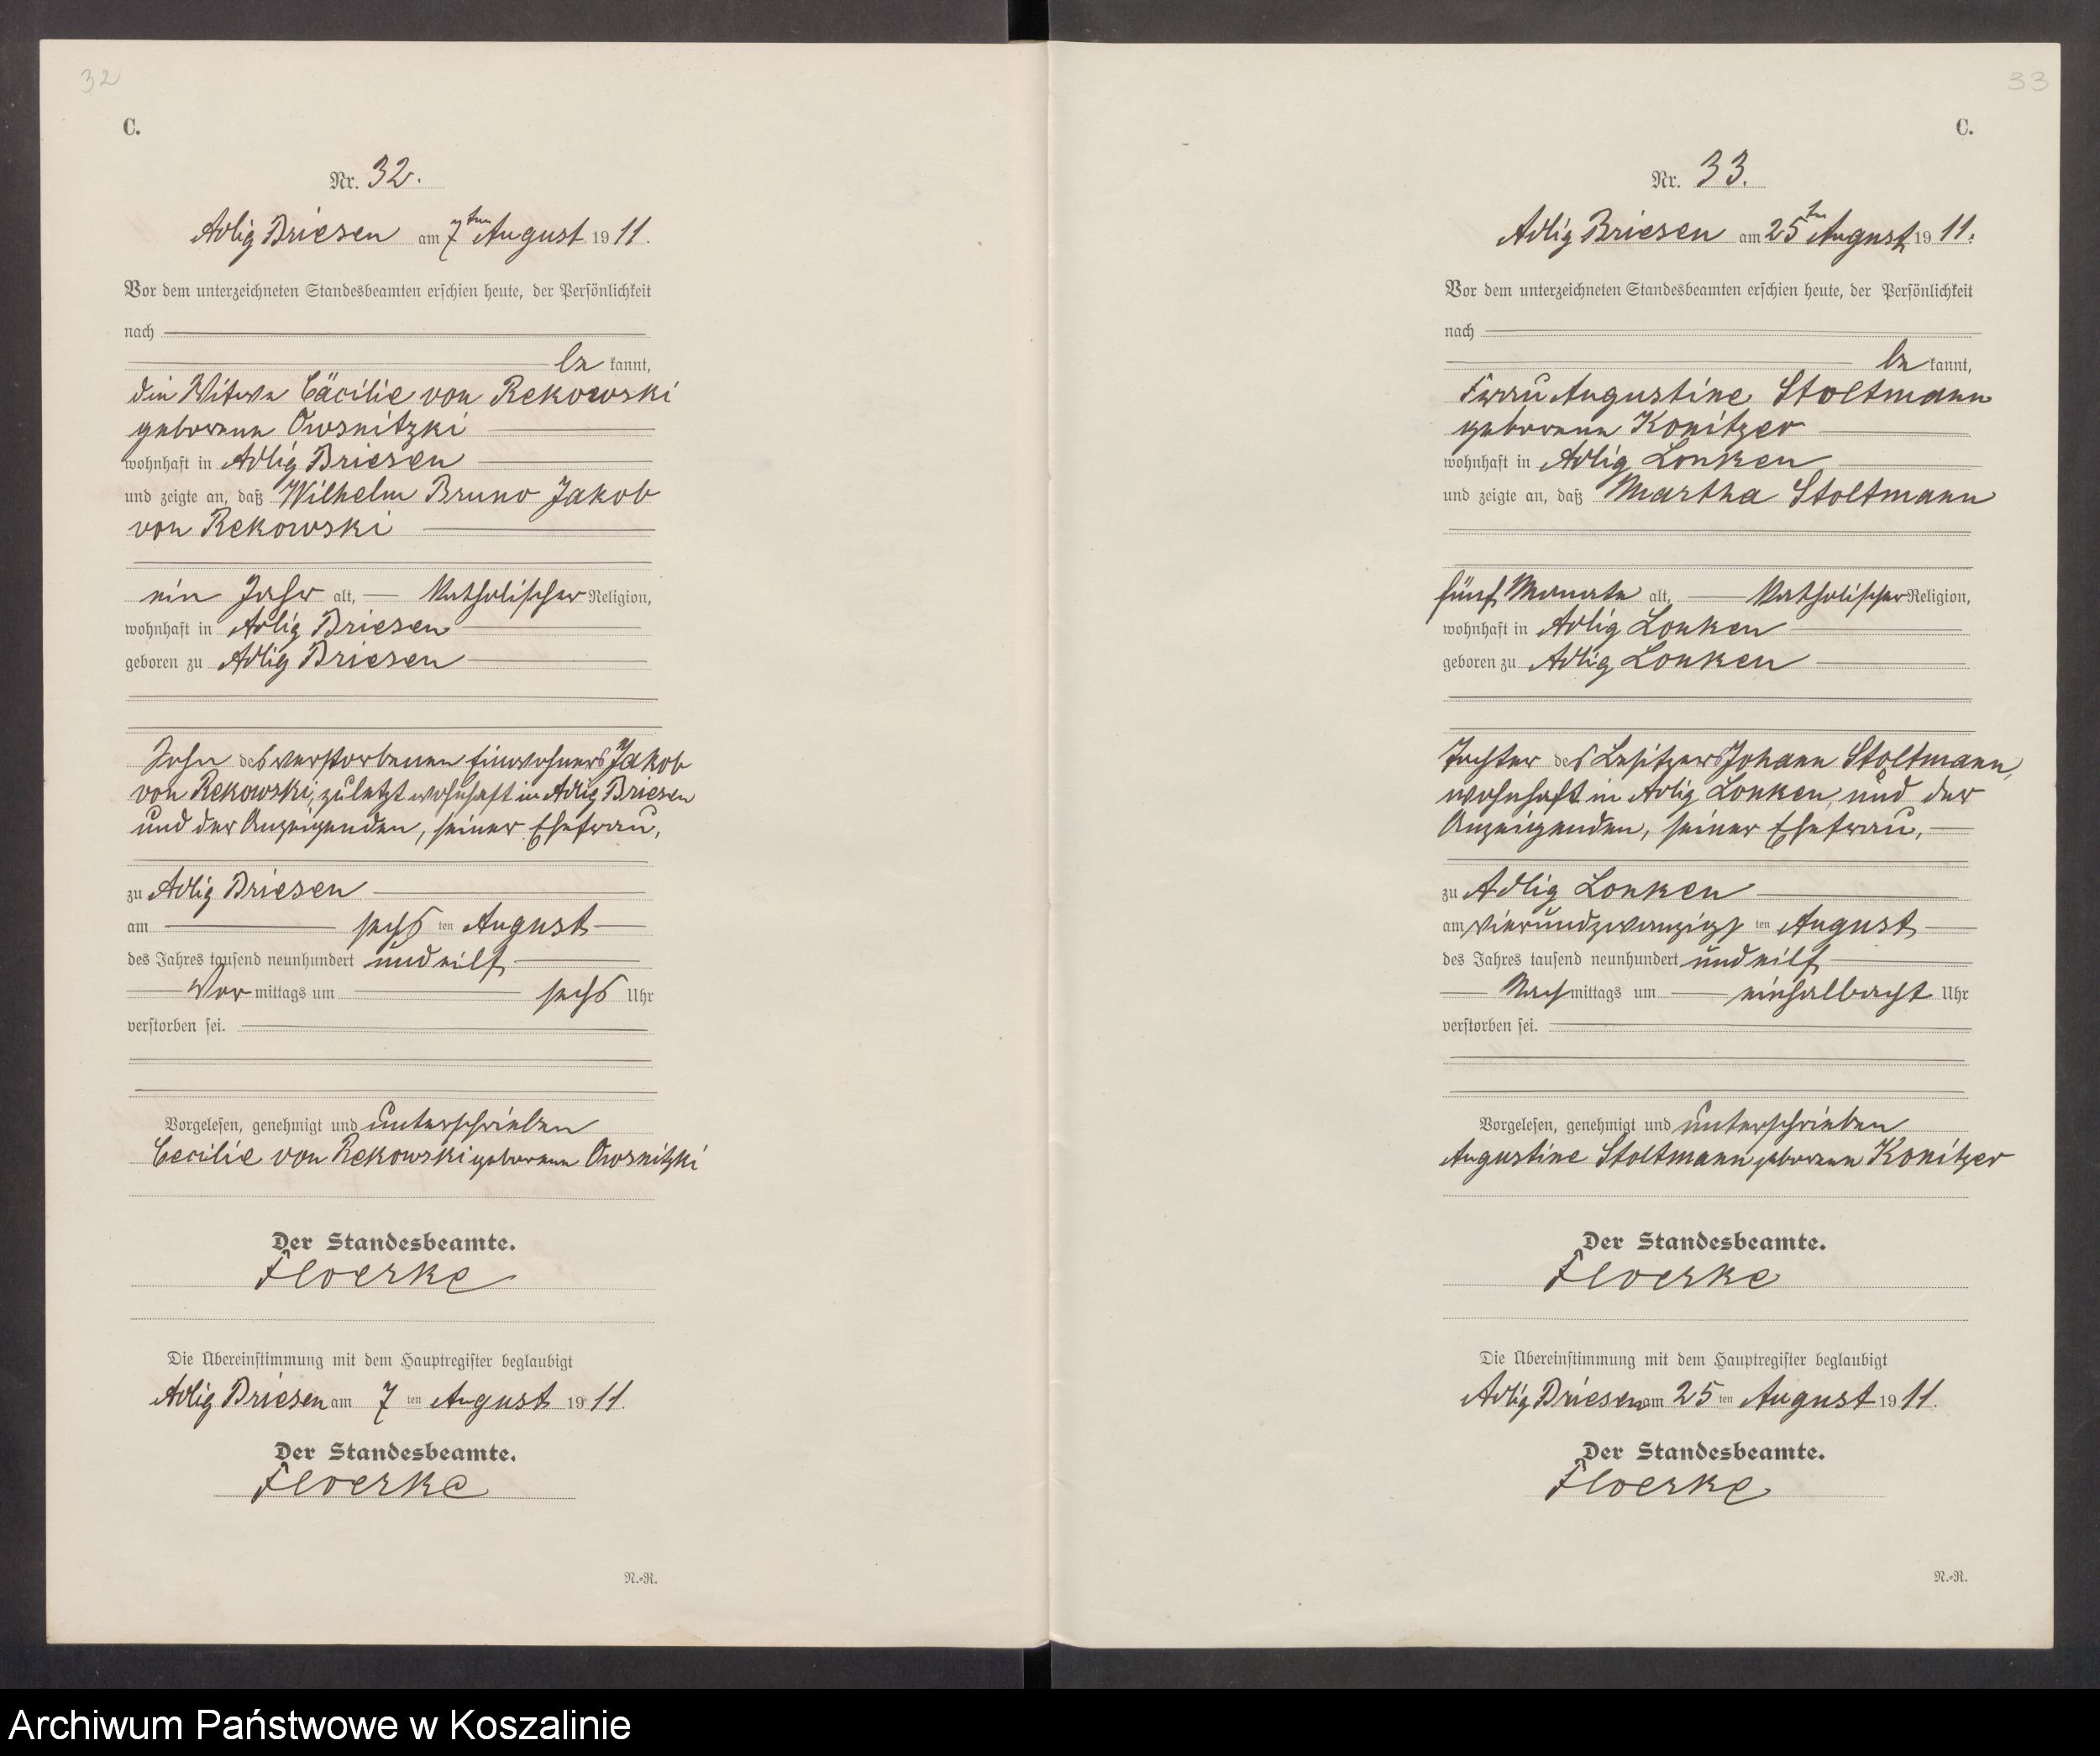 32
C.
Nr. 32.
Adlig Briesen am 7ten August 1911.
Vor dem unterzeichneten Standesbeamten erschien heute, der Persönlichkeit
nach
be kannt,
die Witwe Cäcilie von Rekowski
geborene Owsnitzki
wohnhaft in Adlig Briesen
und zeigte an, daß Wilhelm Bruno Jakob
von Rekowski
ein Jahr alt, katholischer Religion,
wohnhaft in Adlig Briesen
geboren zu Adlig Briesen
Sohn des verstorbenen Einwohners Jakob
von Rekowski, zuletzt wohnhaft in Adlig Briesen
und der Anzeigenden, seiner Ehefrau,
zu Adlig Briesen
am sechs ten August
des Jahres tausend neunhundert und eilf
Vor mittags um sechs Uhr
verstorben sei.
Vorgelesen, genehmigt und unterschrieben
Cecilie von Rekowski geborene Owsnitzki
Der Standesbeamte.
Floerke
Die Übereinstimmung mit dem Hauptregister beglaubigt
Adlig Briesen am 7 ten August 1911.
Der Standesbeamte.
Floerke
N.=R.
33
C.
Nr. 33.
Adlig Briesen am 25ten August 1911.
Vor dem unterzeichneten Standesbeamten erschien heute, der Persönlichkeit
nach
be kannt,
Frau Augustine Stoltmann
geborene Konitzer
wohnhaft in Adlig Lonken
und zeigte an, daß Martha Stoltmann
fünf Monate alt, katholischer Religion,
wohnhaft in Adlig Lonken
geboren zu Adlig Lonken
Tochter des Besitzers Johann Stoltmann,
wohnhaft in Adlig Lonken, und der
Anzeigenden, seiner Ehefrau,
zu Adlig Lonken
am vierundzwanzigs ten August
des Jahres tausend neunhundert und eilf
Nach mittags um einhalbacht Uhr
verstorben sei.
Vorgelesen, genehmigt und unterschrieben
Augustine Stoltmann geborene Konitzer
Der Standesbeamte.
Floerke
Die Übereinstimmung mit dem Hauptregister beglaubigt
Adlig Briesen am 25 ten August 1911.
Der Standesbeamte.
Floerke
N.=R.
Archiwum Państwowe w Koszalinie